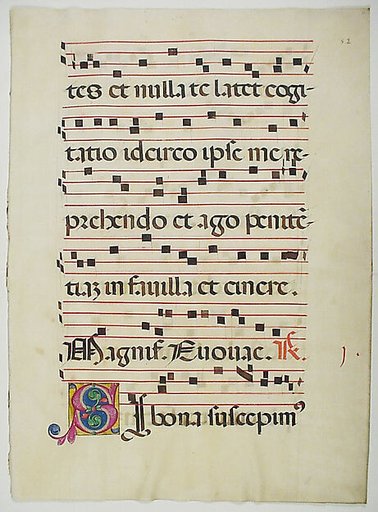 52
tes et nulla te latet cogi-
tatio idcirco ipse me re-
prehendo et ago penitē-
tiaz in fauilla et cinere.
Magnif. Euouae.
SI bona suscepimꝰ